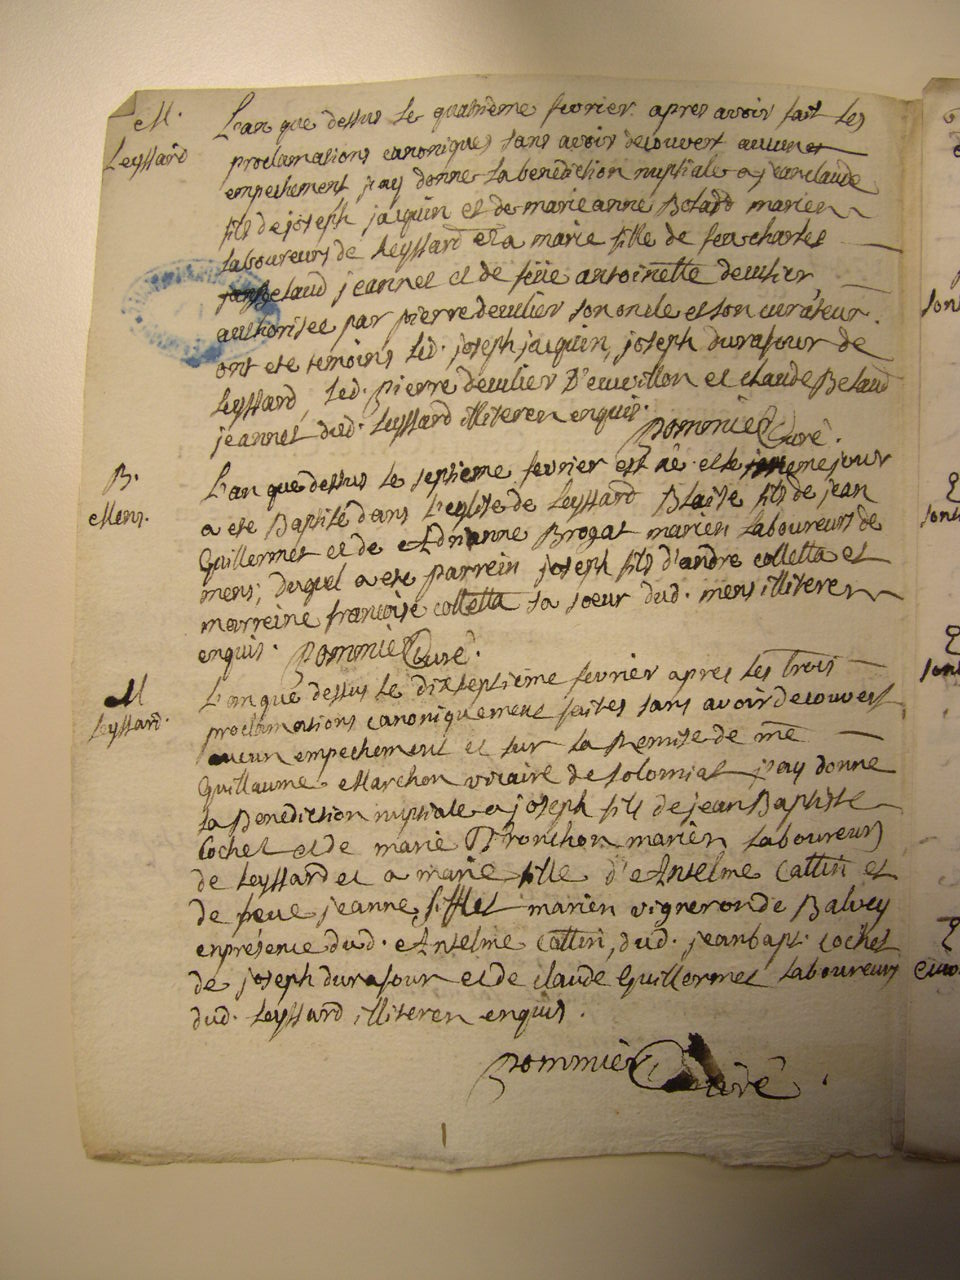 M.
Leyssard
L'an que dessus le quatrieme fevrier apres avoir fait les
proclamations canoniques sans avoir decouvert aucun
empechement j'ay donné la benediction nuptiale a jean claude
fils de joseph jacquin et de marie anne Belad mariers
laboureurs de Leyssard et a marie fille de feu charles
Belaud jeannet et de feüe antoinette deculier,
authorisée par pierre deculier son oncle et son curateur.
ont ete temoins led. joseph jacquin, joseph durafour de
Leyssard, led. pierre deculier et claude Belaud
jeannet dud. Leyssard illiteren enquis.
pommier Curé.
B.
Mens.
L'an que dessus le septieme fevrier est né et le meme jour
a eté Baptisé dans l'eglise de Leyssard Blaise fils de jean
Guillermet et de Adrianne Brogat marien laboureurs de
mens; duquel a eté parrein joseph fils d'andré colletta et
marreine francoise colletta sa soeur dud. mens illiteren
enquis. pommier Curé.
M
Leyssard.
L'an que dessus le dixseptieme fevrier apres les trois
proclamations canoniquement faites sans avoir decouvert
aucun empechement et sur la Remise de me
Guillaume Marchon vicaire de solomiat j'ay donné
la Benediction nuptiale a joseph fils de jean Baptiste
Cochet et de marie marien laboureurs
de Leyssard et a marie fille d'Anselme Cattin et
de feue jeanne sifflet marien vigneron de Balvey
en présence dud. Anselme Cattin, dud. jean bapt. cochet
de joseph durafour et de claude Guillermet laboureurs
dud. Leyssard illiteren enquis.
pommier Curé.